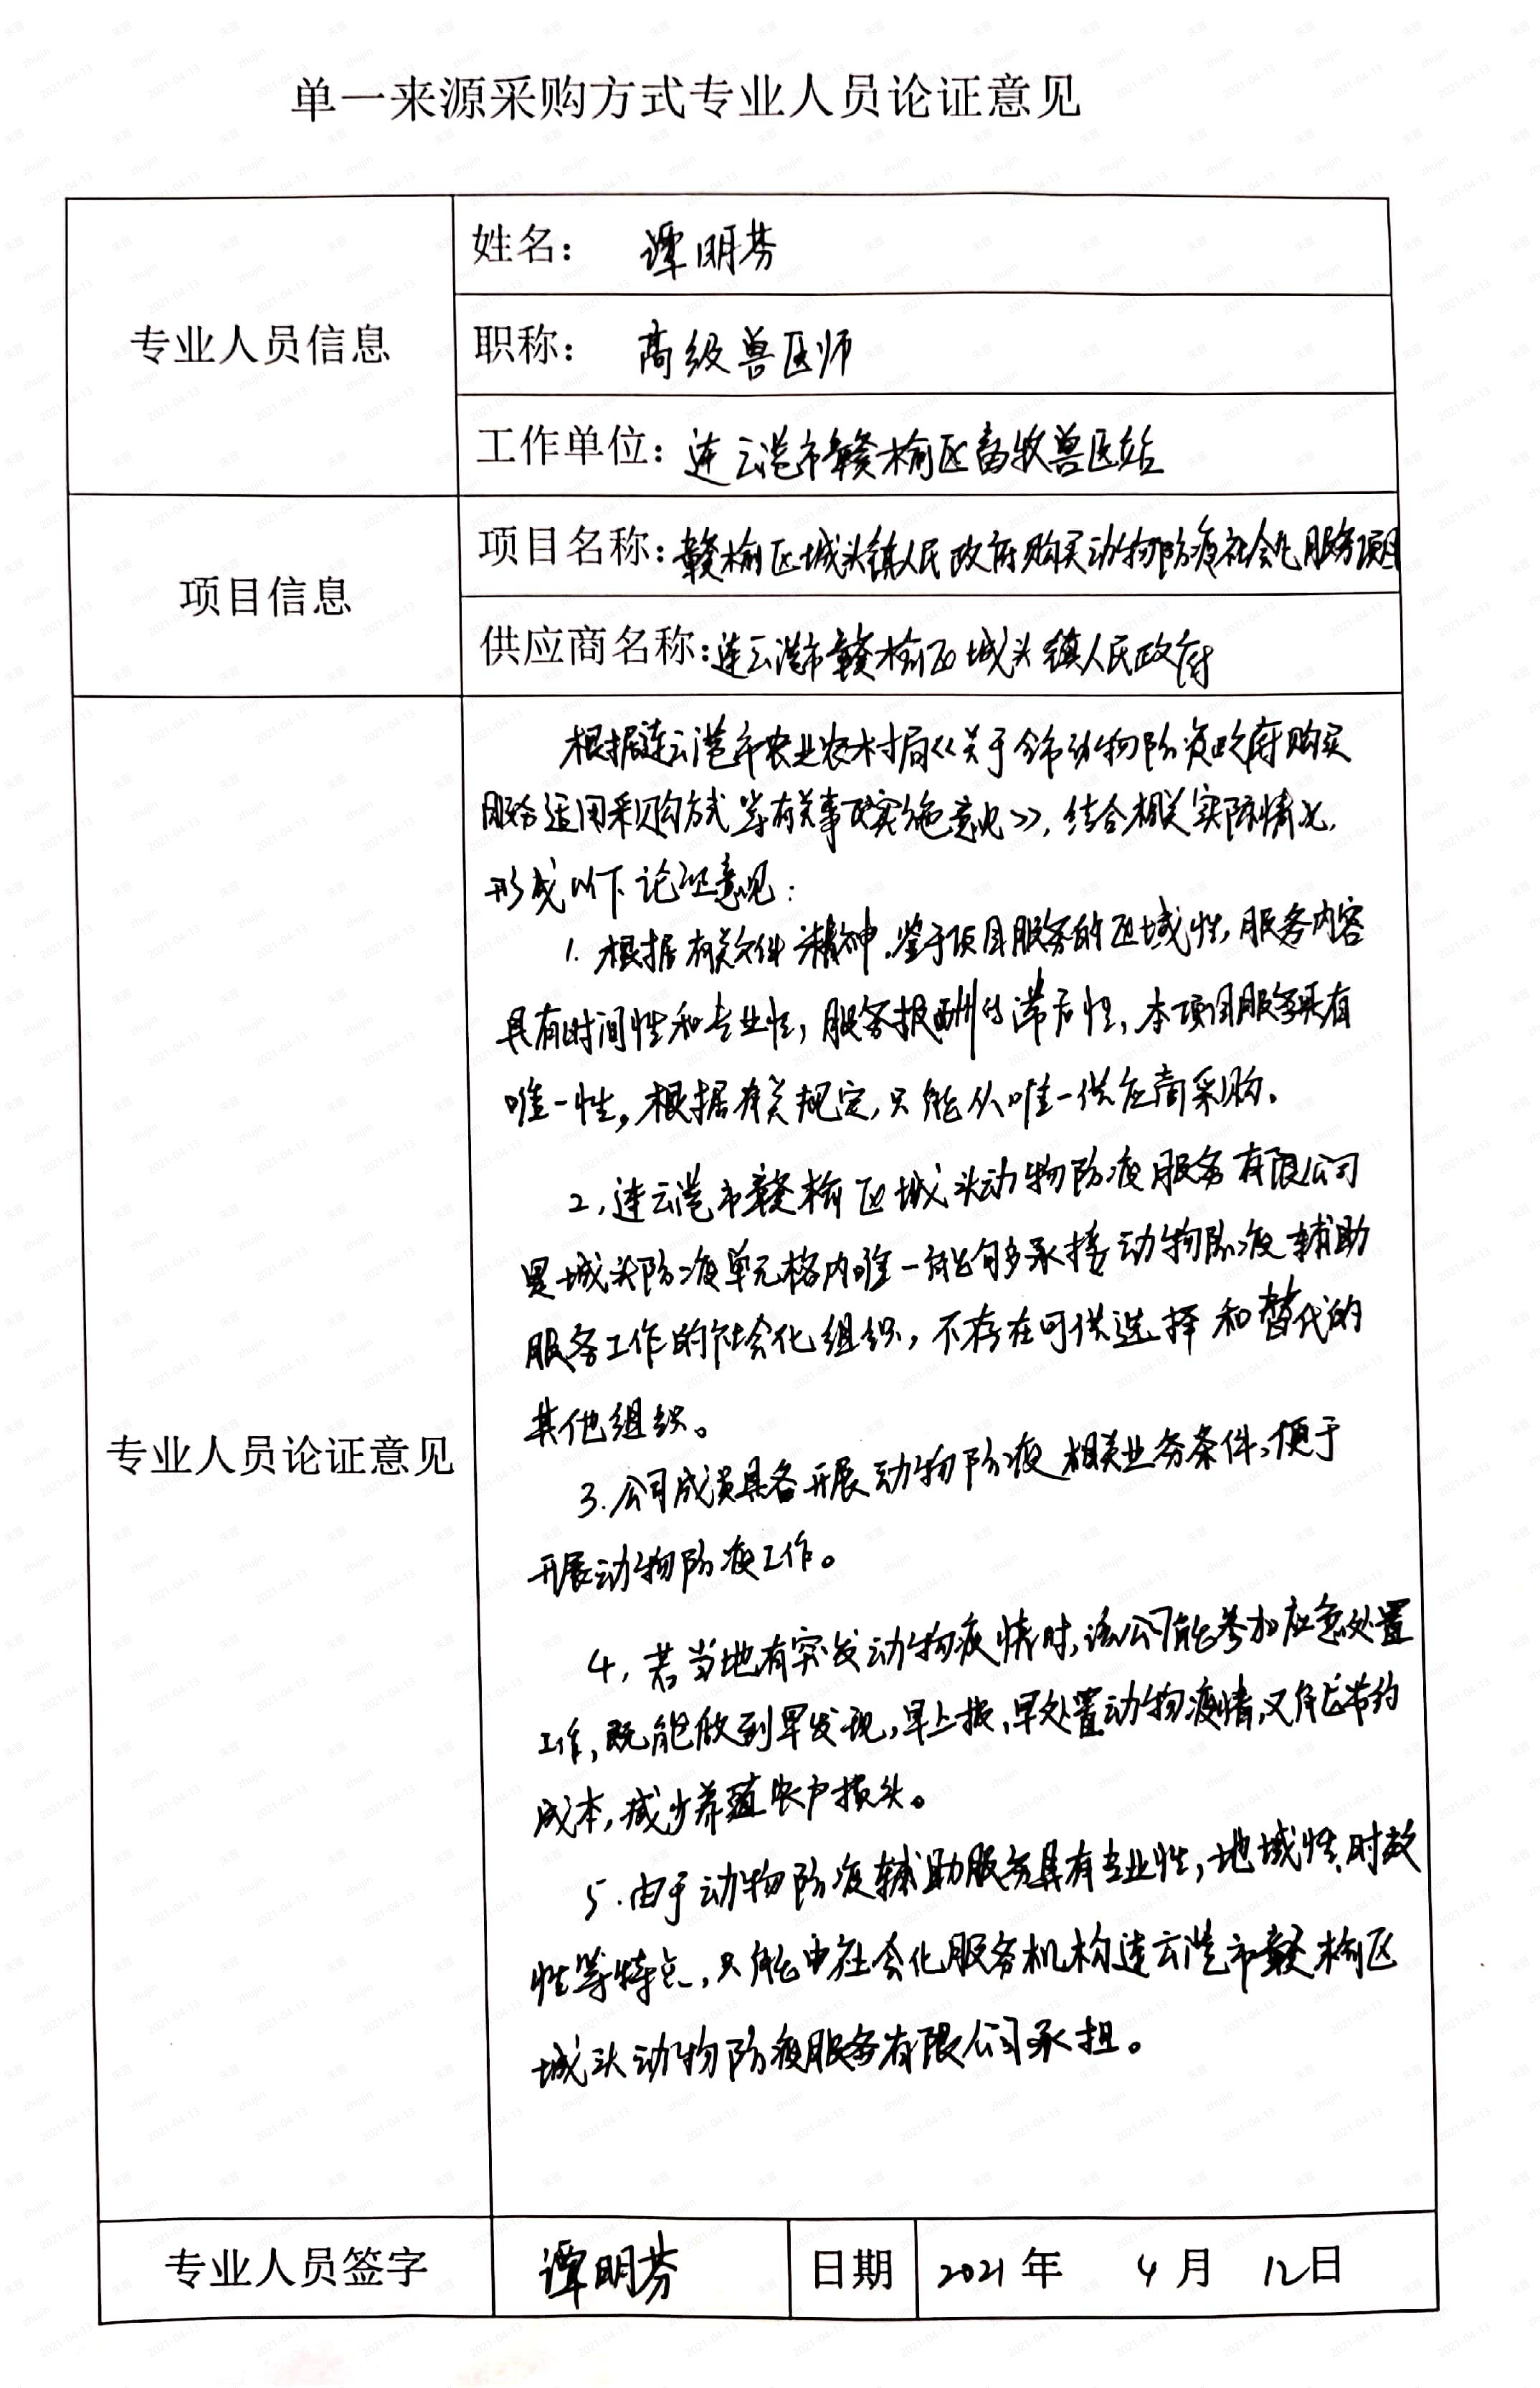 单一来源采购方式专业人员论证意见
专业人员信息
姓名： 谭明芬
职称： 高级兽医师
工作单位：连云港市赣榆区畜牧兽医站
项目信息
项目名称：赣榆区城头镇人民政府购买动物防疫社会化服务项目
供应商名称：连云港市赣榆区城头镇人民政府
专业人员论证意见
根据连云港市农业农村局《关于全市动物防疫政府购买
服务适用采购方式等有关事项实施意见》，结合相关实际情况，
形成以下论证意见：
1. 根据有关文件精神，鉴于项目服务的区域性，服务内容
具有时间性和专业性，服务报酬的滞后性，本项目服务具有
唯一性。根据有关规定，只能从唯一供应商采购。
2，连云港市赣榆区城头动物防疫服务有限公司
是城头防疫单元格内唯一能够承接动物防疫辅助
服务工作的社会化组织，不存在可供选择和替代的
其他组织。
3. 公司成员具备开展动物防疫相关业务条件，便于
开展动物防疫工作。
4，若当地有突发动物疫情时，该公司能参加应急处置
工作，既能做到早发现，早上报，早处置动物疫情，又能节约
成本，减少养殖农户损失。
5. 由于动物防疫辅助服务具有专业性，地域性、时效
性等特点，只能由社会化服务机构连云港市赣榆区
城头动物防疫服务有限公司承担。
专业人员签字
谭明芬
日期
2021 年 4 月 12 日
朱晋
zhujin
2021-04-13